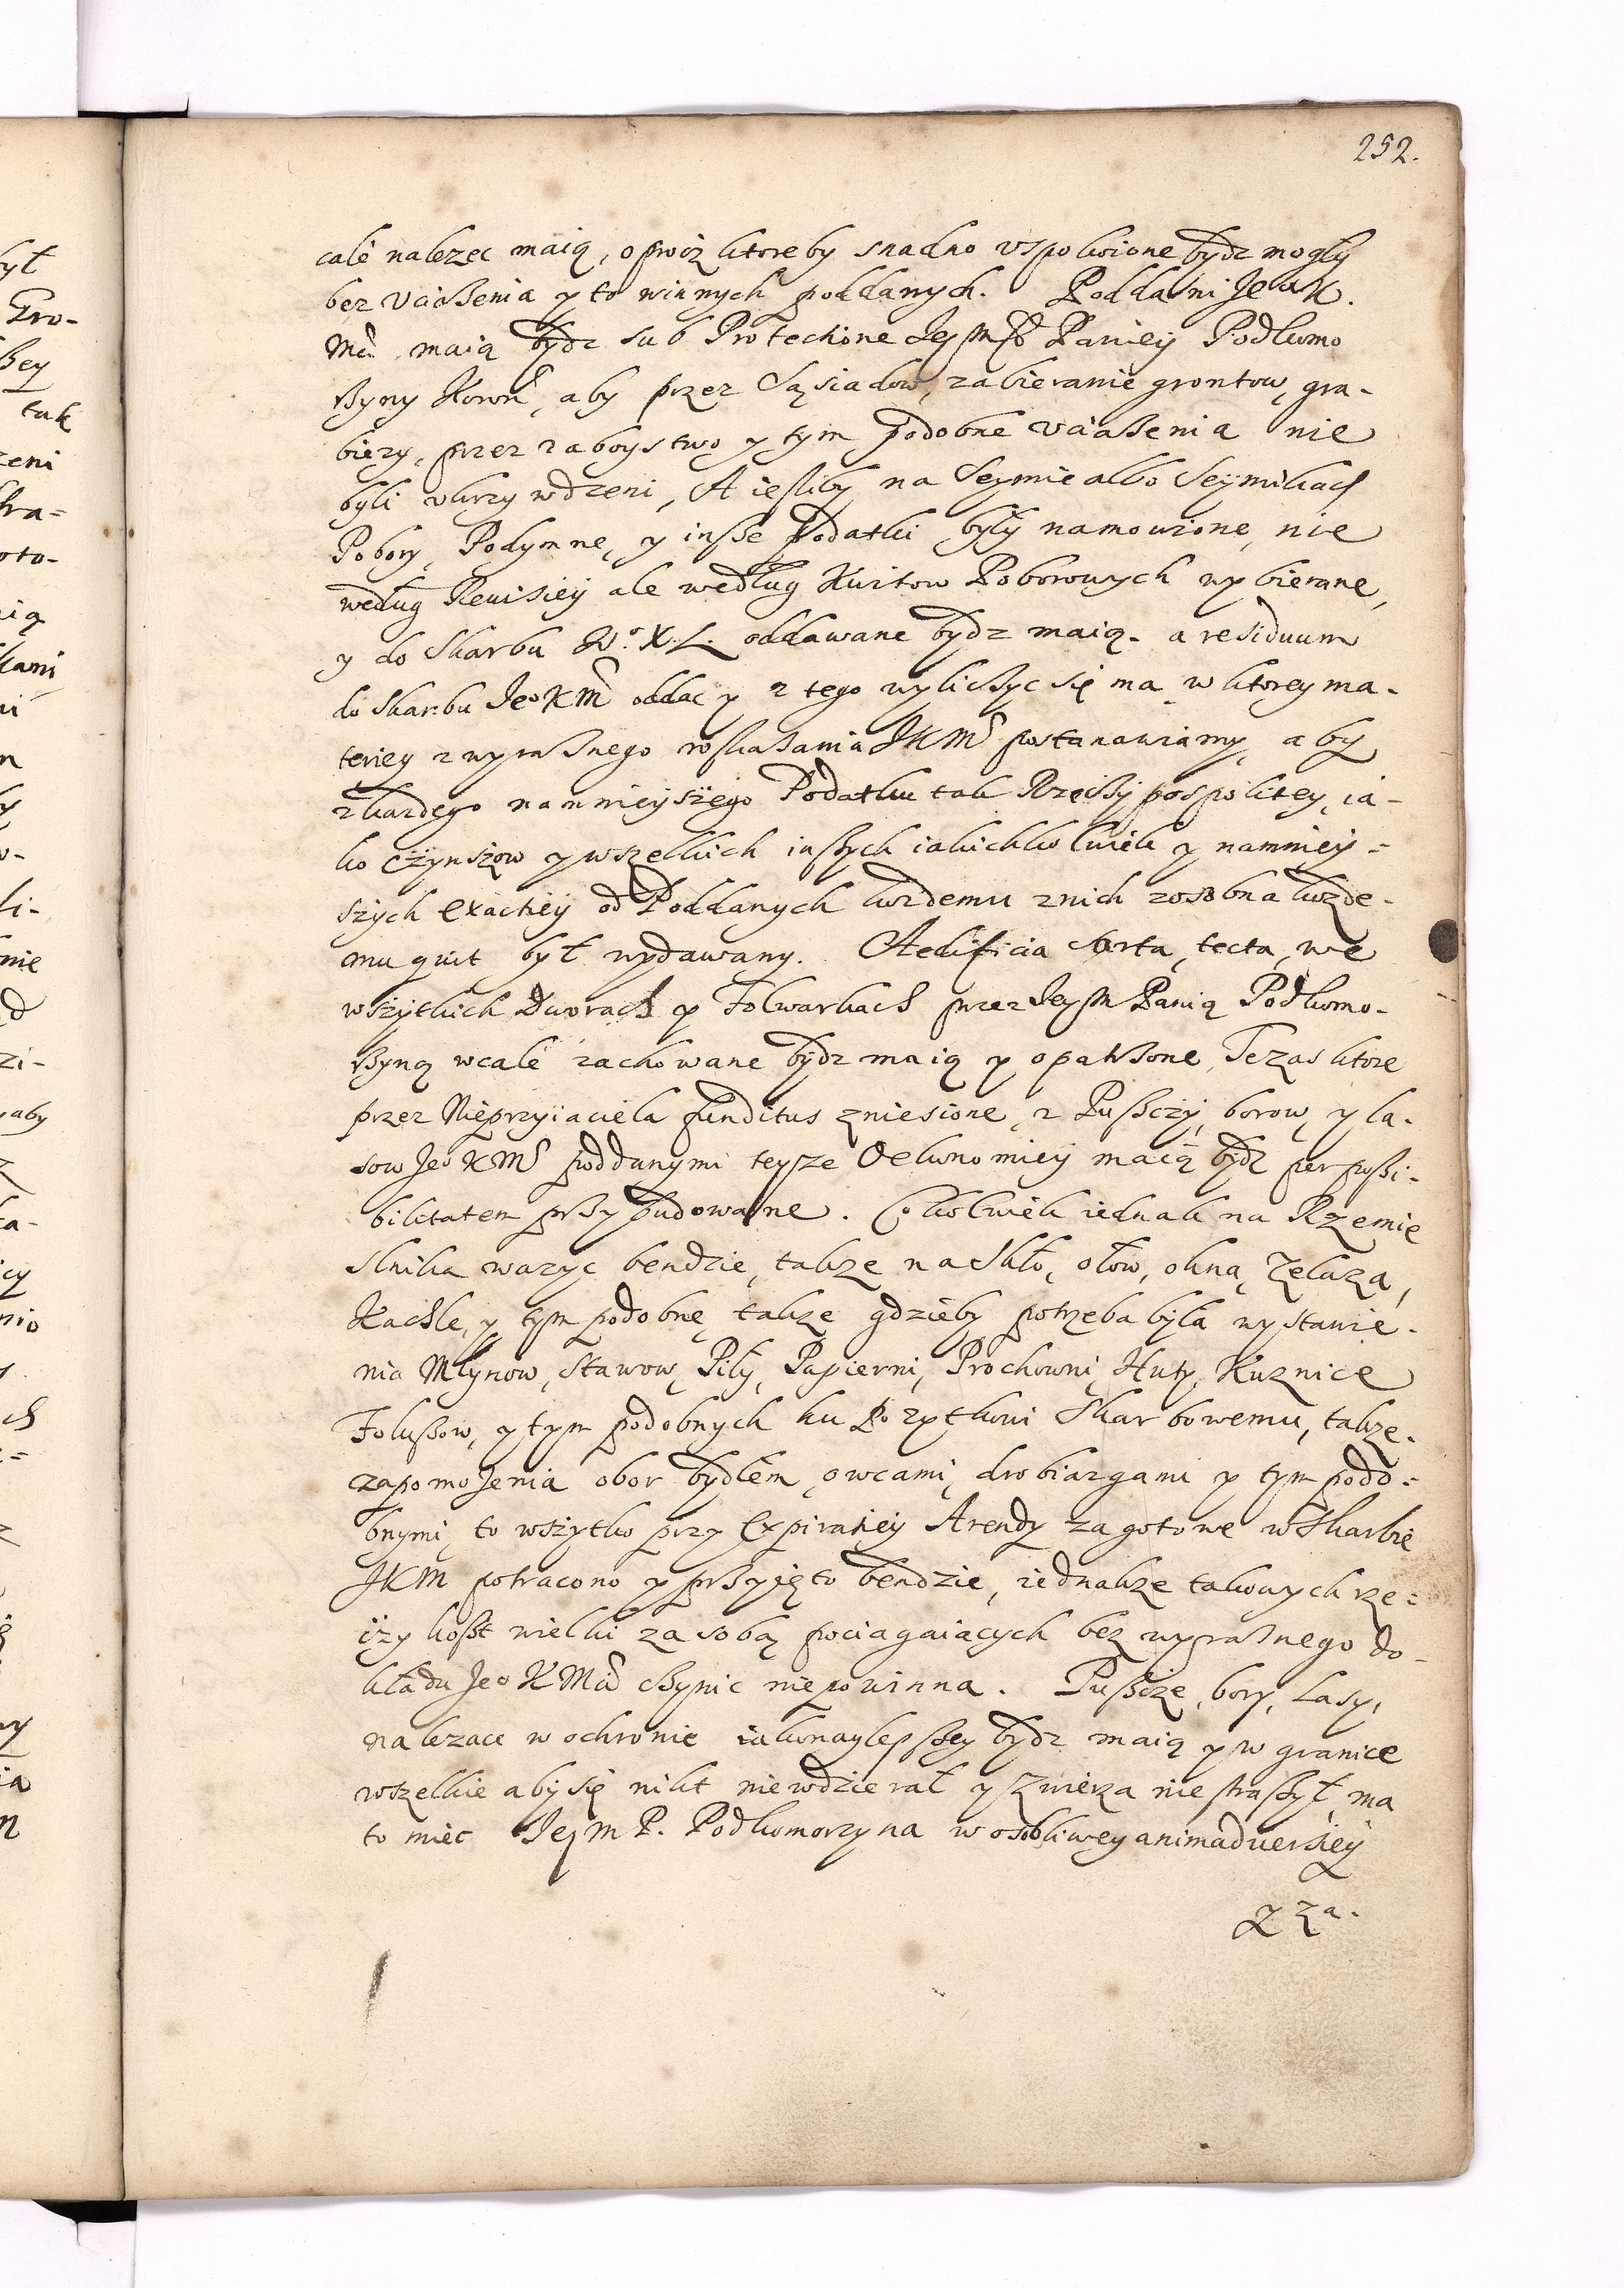 252.
cale nalezec maią, oprocz ktoreby snadno vspokoione bydz mogły
bez vciaszenia y to winnych poddanych. Poddani Jeo K.
Mci maią bydz sub Protectione Jey Mci Paniey Podkomo
rzyny Koron, aby przez Sąsiadow, zabieranie grontow, gra-
biezy, przez zaboystwo y tym podobne vciaszenia nie
byli vkrzywdzeni, A iesliby na Seymie albo Seymikach
Pobory, Podymne, y insze Podatki były namowione, nie
według Reuisiey ale według Kwitow Poborowych wybierane,
y do Skarbu W. X. L. oddawane bydz maią. a residuum
do Skarbu Jeo KMci oddac y z tego wyliczyc się ma, w ktorey ma-
teriey z wyraznego roskazania JKMci postanawiamy, aby
z kazdego namnieyszego Podatku tak Rzeczyspospolitey, ia-
ko czynszow y wszelkich inszych iakichkolwiek y namniey-
szych exactiey od Poddanych kozdemu z nich zosobna kozde-
mu quit był wydawany. Aedificia sarta, tecta, we
wszytkich Dworach y Folwarkach przez Jey M Panią Podkomo-
rzyną wcale zachowane bydz maią y opatrzone, Te zas ktore
przez Nieprzyiaciela funditus zniesione, z Puszczy, borow, y la-
sow Jeo KMci poddanymi teysze Oekonomiey maią bydz per possi-
bilitatem przybudowane. Cokolwiek iednak na Rzemie
slnika wazyc bendzie, takze na Szkło, ołow, okna, zelaza,
Kachle, y tym podobne, takze gdzieby potrzeba była wystawie-
nia Młynow, Stawow, Piły, Papierni, Prochowni, Huty, Kuznice
Foluszow, y tym podobnych ku Pozytkowi Skarbowemu, takze
zapomozenia obor bydłem, owcami, drobiazgami y tym podo-
bnymi, to wszytko przy expiratiey Arendy za gotowe w Skarbie
JKM potrącono y przyięto bendzie, iednakze takowych rze-
czy koszt wielki za sobą pociagaiących bez wyraznego do-
kładu Jeo K Mci czynic niepowinna. Puszcze, bory, Lasy,
nalezace w ochronie iakonaylepszey bydz maią y w granice
wszelkie aby się nikt niewdzierał y zwierza niestraszył, ma
to miec Jey M P. Podkomorzyna w osobliwey animaduersiey
y za-